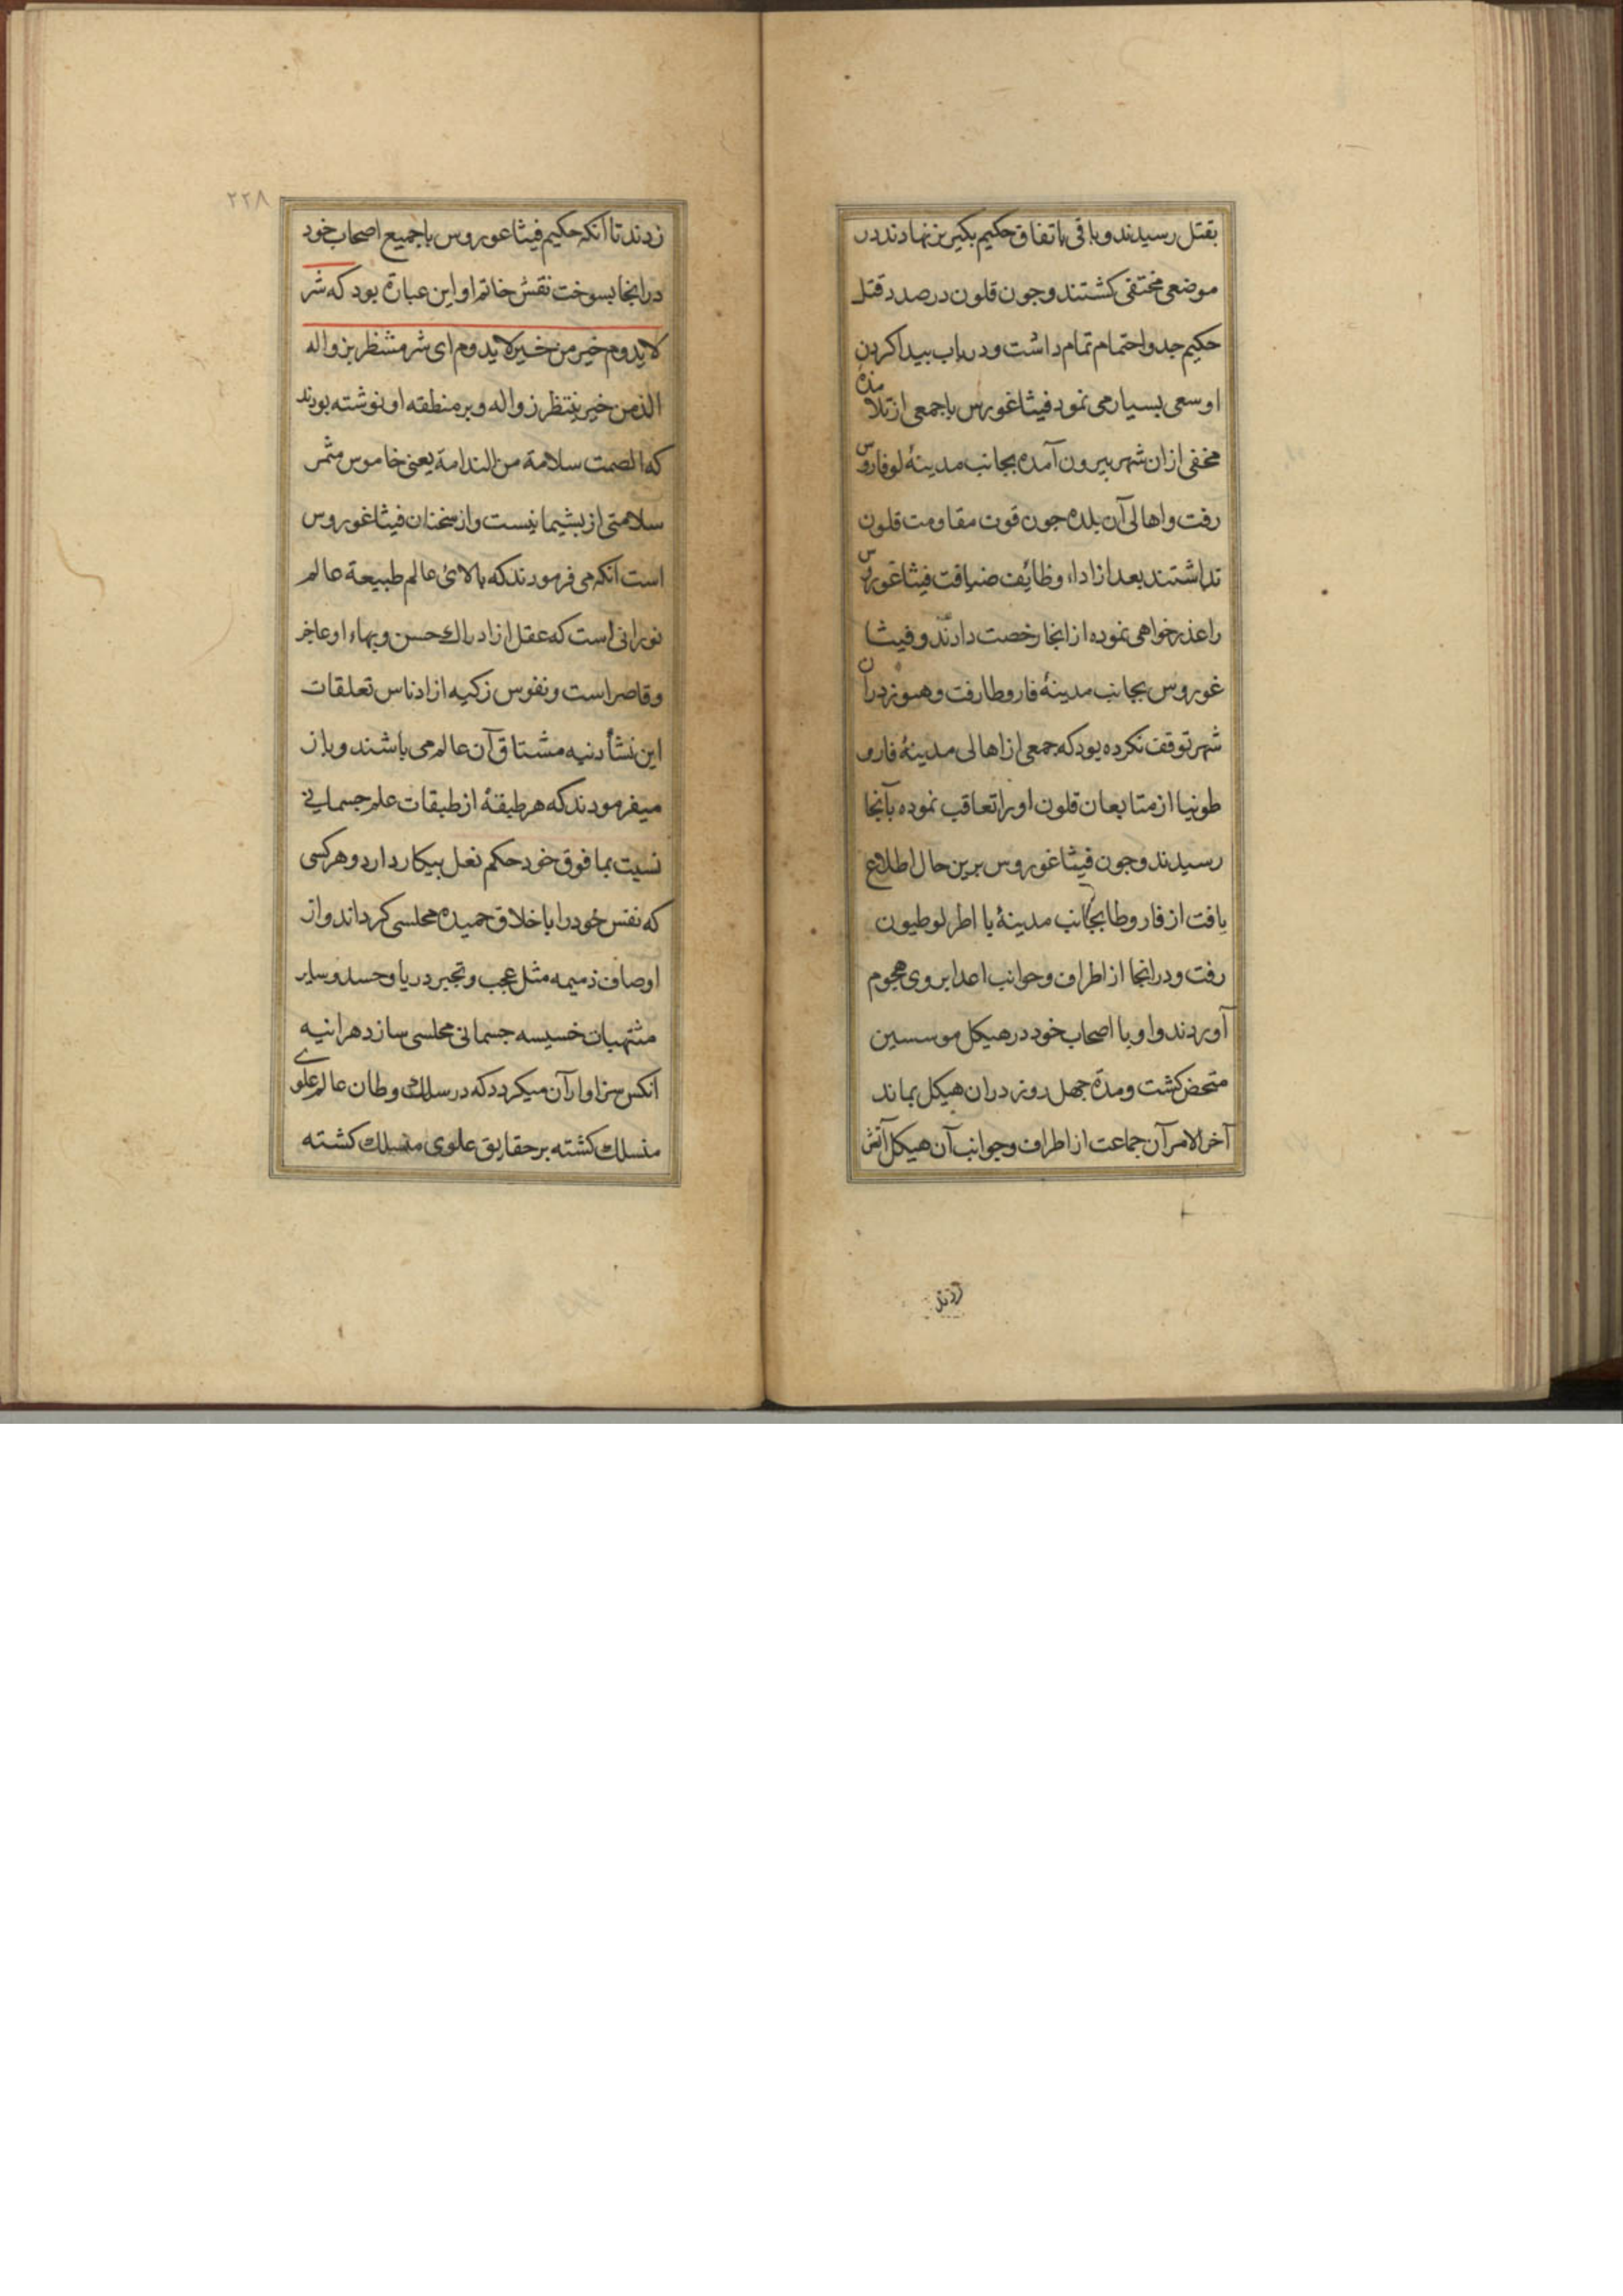 بقتل رسیدند و باقی باتفاق حکیم بکیریز نهادند در
موضعی مختفی کشتند و جون قلون در صدد قتل
حکیم جد و احتمام تمام داشت و در باب بیدا کردن
او سعی بسیار می نمود فیثاغورس با جمعی از تلامذه
مخفی ازان شهر بیرون آمده بجانب مدینهٔ لوفاروس
رفت و اهالی آن بلده جون قوت مقاومت قلون
نداشتند بعد از اداء وظایف ضیافت فیثاغورس
را عذر خواهی نموده از انجا رخصت دادند و فیثا
غوروس بجانب مدینهٔ فاروطا رفت و هنوز دران
شهر توقف نکرده بود که جمعی از اهالی مدینهٔ فارو
طونیا از متابعان قلون او را تعاقب نموده بآنجا
رسیدند و جون فیثاغوروس برین حال اطلاع
یافت از فاروطا بجانب مدینهٔ با اطرلوطیون
رفت و در انجا از اطراف و جوانب اعدا بروی هجوم
آوردند و او با اصحاب خود در هیکل موسسین
متحض کشت و مدة جهل روز دران هیکل بماند
آخر الامر آن جماعت از اطراف و جوانب آن هیکل آتش
زدند
۲۲۸
زدند تا آنکه حکیم فیثاغوروس با جمیع اصحاب خود
در انجا بسوخت نقش خاتم او این عبارة بود که شر
لا یدوم خیر من خیر لا یدوم ای شر مننظر بزواله
الذ من خیر ینتظر زواله و بر منطقه او نوشته بودند
که الصمت سلامة من الندامة یعنی خاموس مثمر
سلامتی از بشیمانیست و از سخنان فیثاغوروس
است انکه می فرمودند که بالائ عالم طبیعة عالم
نورانی است که عقل از ادراک حسن و بهاء او عاجز
و قاصر است و نفوس زکیه از ادناس تعلقات
این نشأ دنیه مشتاق آن عالم می باشند و باز
میفرمودند که هر طبقهٔ از طبقات علم جسمانی
نسبت بما فوق خود حکم نعل بیکار دارد و هر کسی
که نفس خود را با خلاق حمیده محلسی کرداند و از
اوصاف ذمیمه مثل عجب و تجبر و ریا و حسد و سایر
مشتهیات خسیسه جسمانی محلسی سازد هرانیه
انکس سزاوار آن میکردد که در سلک وطان عالم علوی
منسلک کشته بر حقایق علوی منسلک کشته